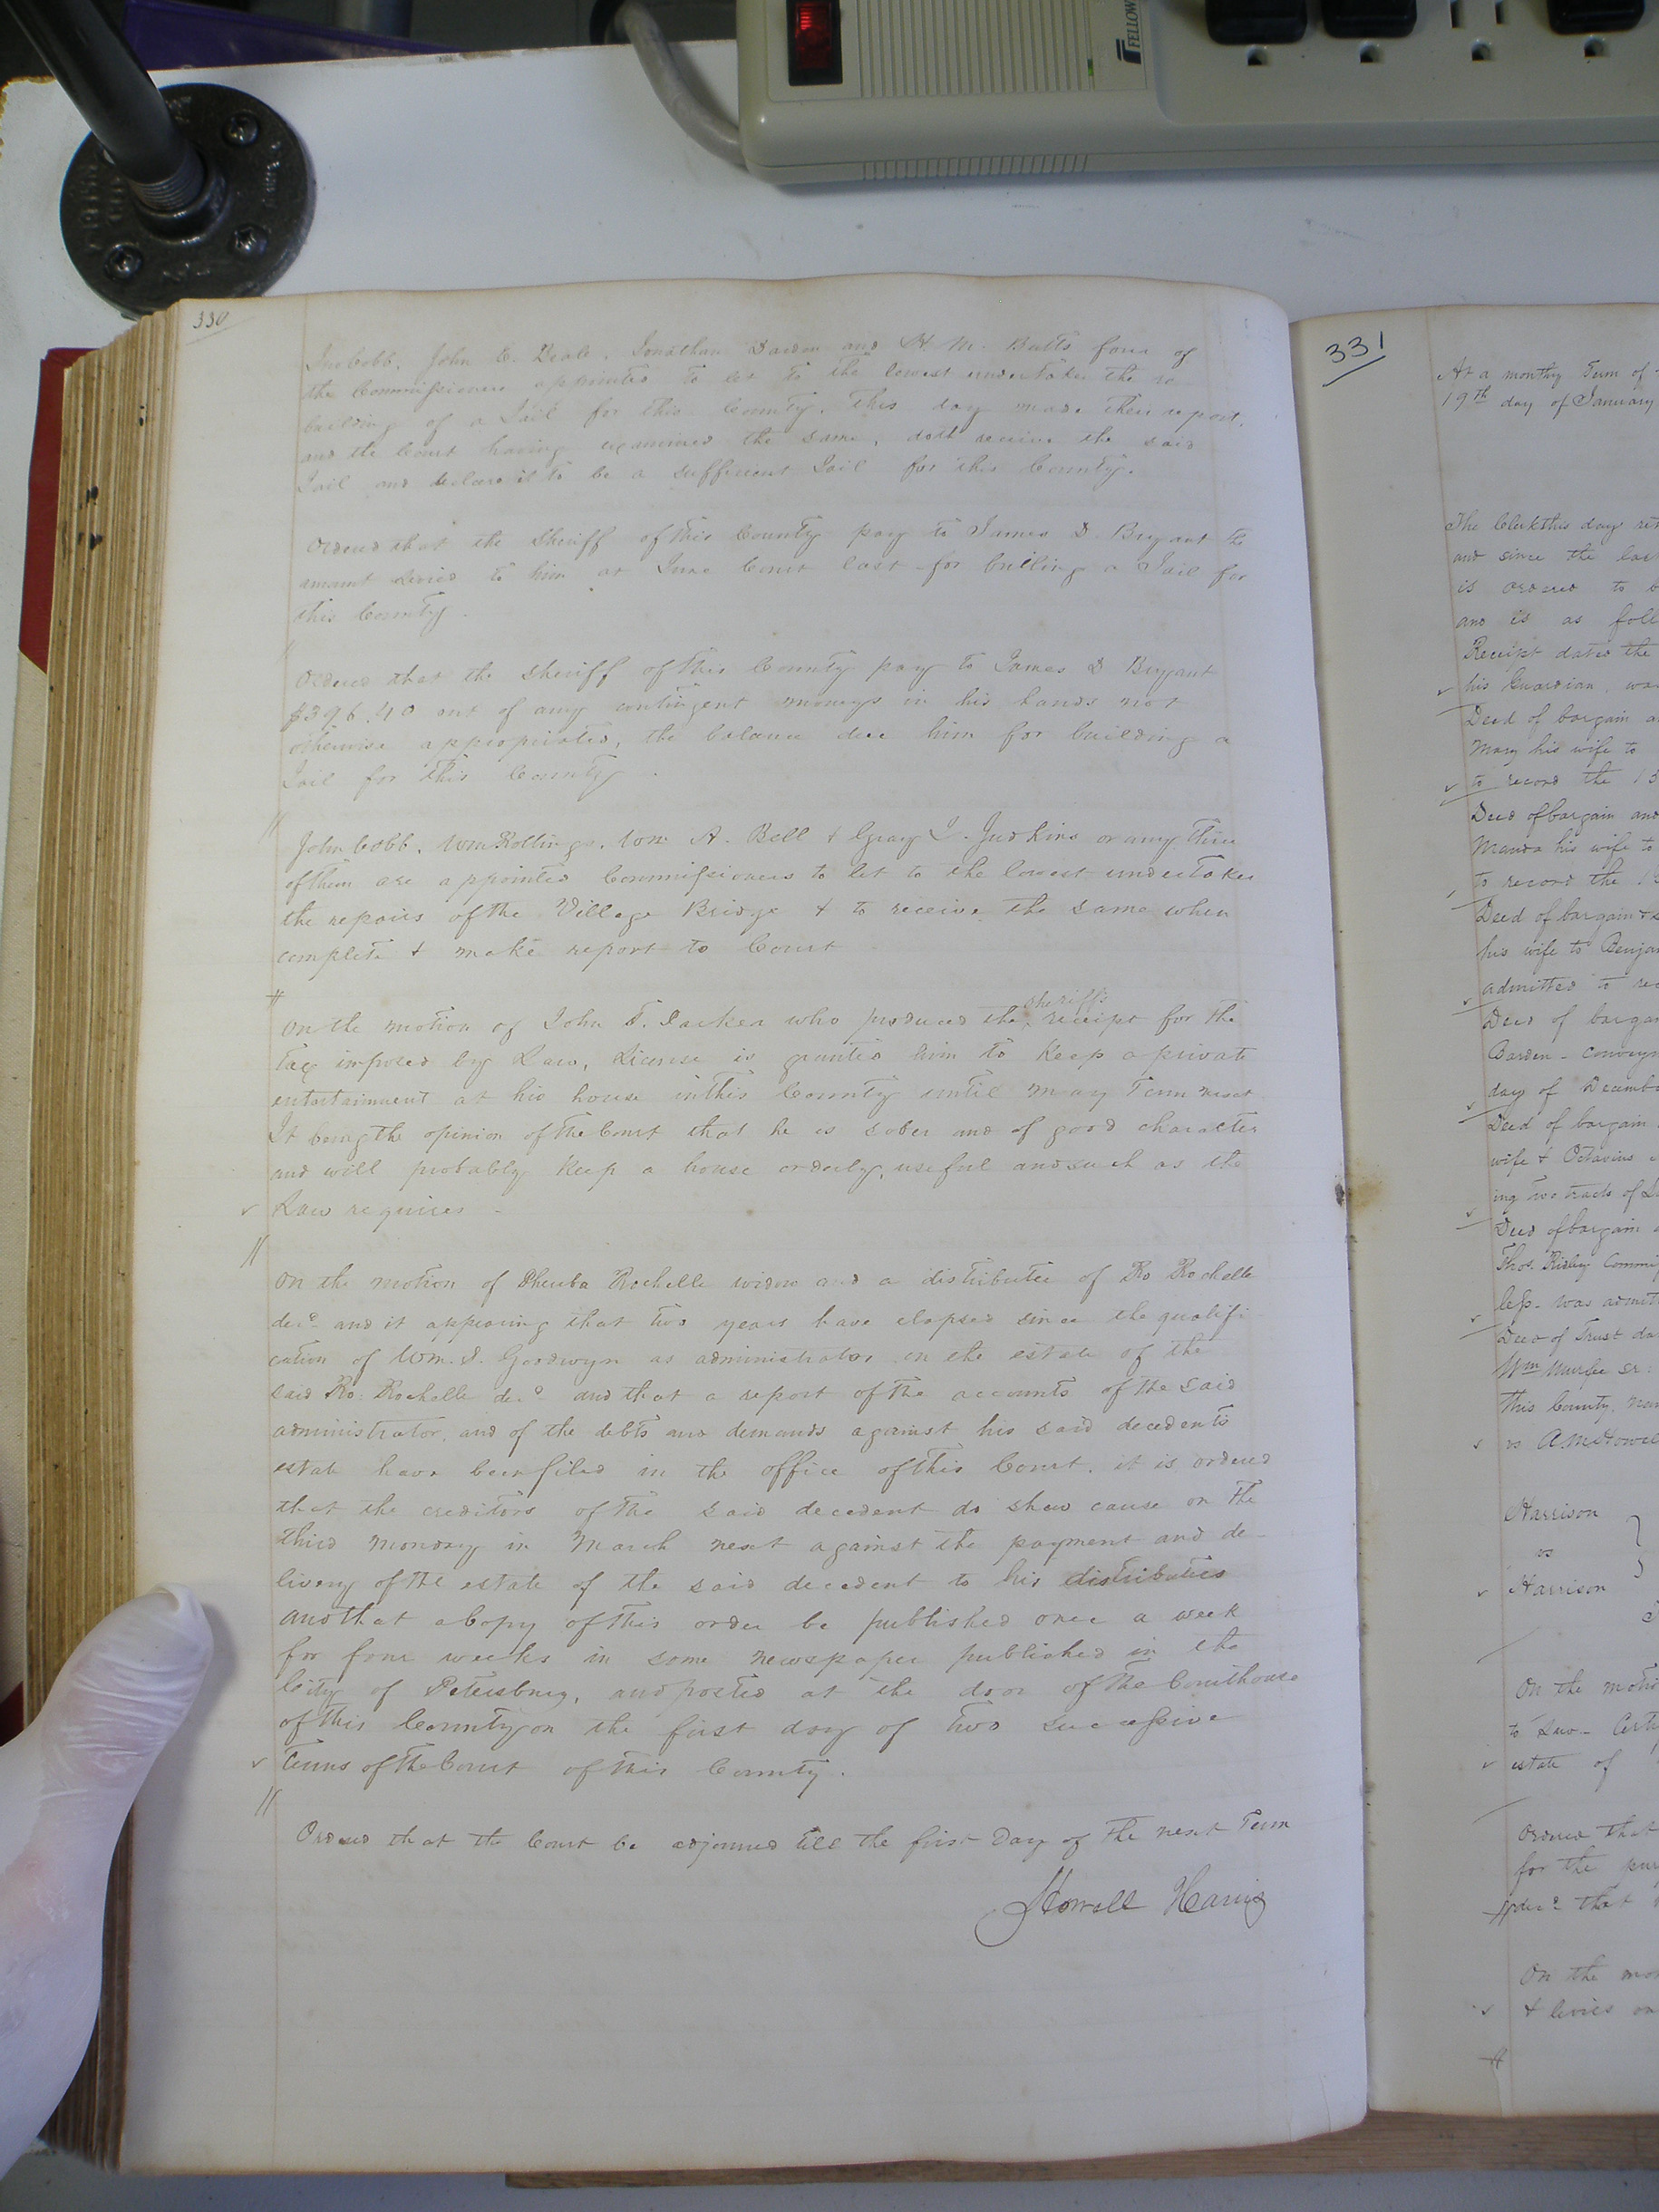 FELLOW
330
Jno Cobb, John E. Beale, Jonathan Darden and H. M. Butts four of
the Commissioners appointed to let to the lowest undertaker the re
building of a Jail for this County, this day made their report,
and the Court having examined the same, doth receive the said
Jail and declare it to be a sufficient Jail for this County.
Ordered that the Sheriff of this County pay to James D. Bryant the
amount levied to him at June Court last for builing a Jail for
this County.
Ordered that the sheriff of this County pay to James D Bryant
$396.40 out of any contingent moneys in his hands not
otherwise appropriated, the balance due him for building a
Jail for this County.
John Cobb, Wm Rollings, Wm A. Bell & Gray J. Judkins or any three
of them are appointed Commissioners to let to the lowest undertaker
the repairs of the Village Bridge & to receive the same when
complete & make report to Court
sheriffs
On the motion of John T. who produced the receipt for the
tax imposed by Law, License is granted him to Keep a private
entertainment at his house in this County until May Term next
It being the opinion of the Court that he is sober and of good character
and will probably Keep a house orderly, useful and such as the
Law requires -
On the motion of Rochelle widow and a distributee of Ro Rochelle
decd and it appearing that two years have elapsed since the qualifi
cation of Wm. J. Goodwyn as administrator on the estate of the
said Ro: Rochelle decd and that a report of the accounts of the said
administrator, and of the debts and demands against his said decedents
estate have been filed in the office of this Court, it is ordered
that the creditors of the said decedent do shew cause on the
third monday in March next against the payment and de-
livery of the estate of the said decedent to his distributees
and that a Copy of this order be published once a week
for four weeks in some newspaper published in the
City of Petersburg, and posted at the door of the Courthouse
of this County on the first day of two successive
Terms of the Court of this County.
Ordered that the Court be adjourned till the first Day of the next Term
Howell Harris
331
At a monthy Term of
19th day of January
The Clerk this day
and since the last
is ordered to
and is as
Receipt dated the
his Guardian, was
Deed of bargain
Mary his wife to
to record the
Deed of bargain and
his wife to
to record the
Deed of bargain &
his wife to
admitted to
Deed of
Barden -
day of
Deed of bargain
wife & Octavius
ing two tracts of
Deed of bargain
Thos. Ridley
was
Deed of Trust
Wm Murfee Sr.
this County,
vs
Harrison
vs
Harrison
On the
to
estate of
Ordered that
for the
decd that
On the
& levies on